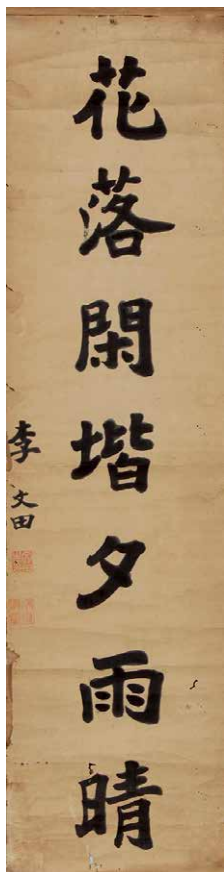 花落閑堦夕雨晴
李文田